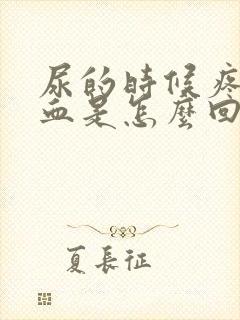 尿的時候疼
血是怎麼回
夏長征